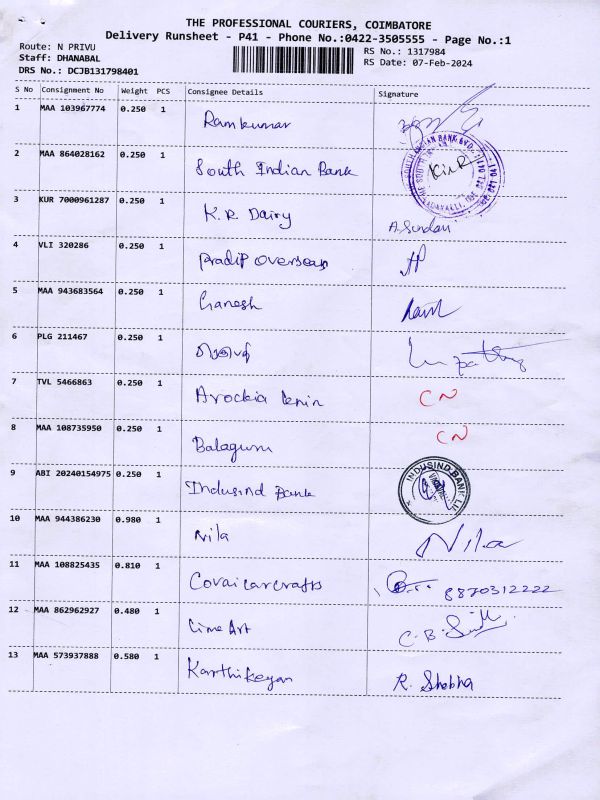 THE PROFESSIONAL COURIERS, COIMBATORE
Delivery Runsheet - P41 - Phone No.:0422-3505555 - Page No.:1
Route: N PRIVU
Staff: DHANABAL
DRS No.: DCJB131798401
RS No.: 1317984
RS Date: 07-Feb-2024
S No Consignment No Weight PCS Consignee Details Signature
1 MAA 103967774 0.250 1 Ramkumar
2 MAA 864028162 0.250 1 South Indian Bank
3 KUR 7000961287 0.250 1 K.R. Dairy A. Sundari
4 VLI 320286 0.250 1 Pradip Overseas
5 MAA 943683564 0.250 1 Ganesh
6 PLG 211467 0.250 1
7 TVL 5466863 0.250 1 Arockia lenin CN
8 MAA 108735950 0.250 1 Balaguru CN
9 ABI 20240154975 0.250 1 Indusind Bank INDUSIND BANK
10 MAA 944386230 0.980 1 Nila Nila
11 MAA 108825435 0.810 1 Covaicarcrafts 8870312222
12 MAA 862962927 0.480 1 Lime Art C.B.
13 MAA 573937888 0.580 1 Karthikeyan R. Shobha